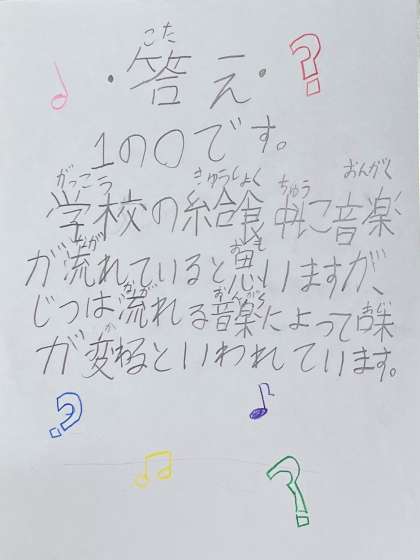 こた
・答え・
1の○です。
がっこう きゅうしょく ちゅう おんがく
学校の給食中に音楽
なが おも
が流れていると思いますが、
なが おんがく
じつは流れる音楽によって味
か
が変わるといわれています。